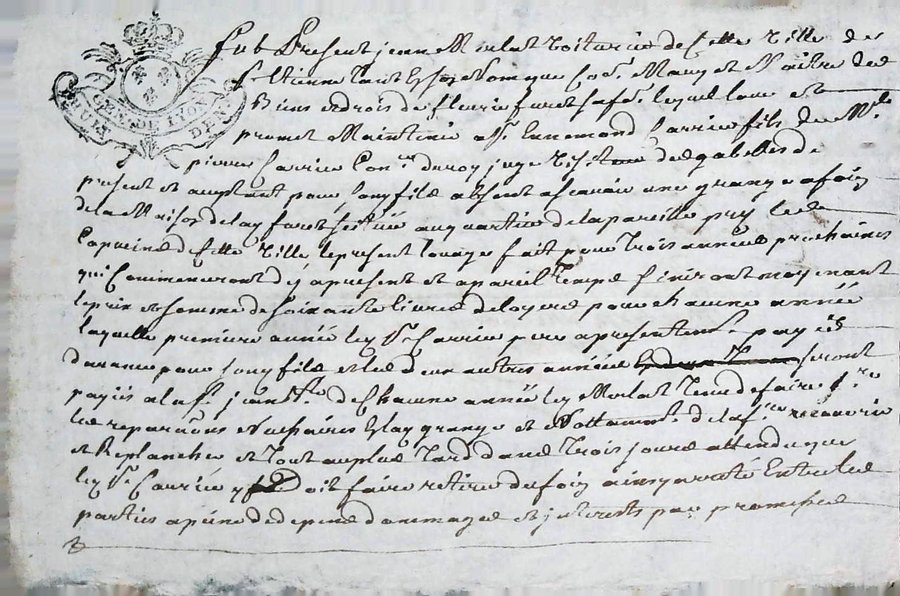 GEN. DE LYON
fut Present jean Merlat Voiturier de Cette Ville de
St Etienne tant En son Nom que Comme Mary et Maitre des
Biens et drois de fleurie furet sa fe. lequel loue et
promet Maintenir a Sr. Ennemond Carrier fils de Mre.
pierre Carrier Coner. du roy juge Visiteur des gabelles de
present et acceptant pour son fils absent a scavoir une grange a foin
de la Maison de lay furet scittuée au quartier de la pareille pres les
Capucins de Cette Ville le present louage fait pour trois années prochaines
qui Commenceront dez a present et a pareil temps finiront moyenant
le prix et somme de soixante livres de loyer pour chacune année
laquelle premiere année ley Sr. Carrier pere a presentemt. payés
d'avance pour son fils et les deux autres années seront
payés a la St. jean de Chacune année ley Merlat tenu de faire
les reparaons. Necessaires a lay grange et Nottamt. de la fe. recouvrir
et Replancher et tout au plus tard dans trois jours attendu que
ley Sr. Carrier y doit faire retirer du foin ainsy arreté Entre les
parties a peine de depens dommages et jnterests par promesses